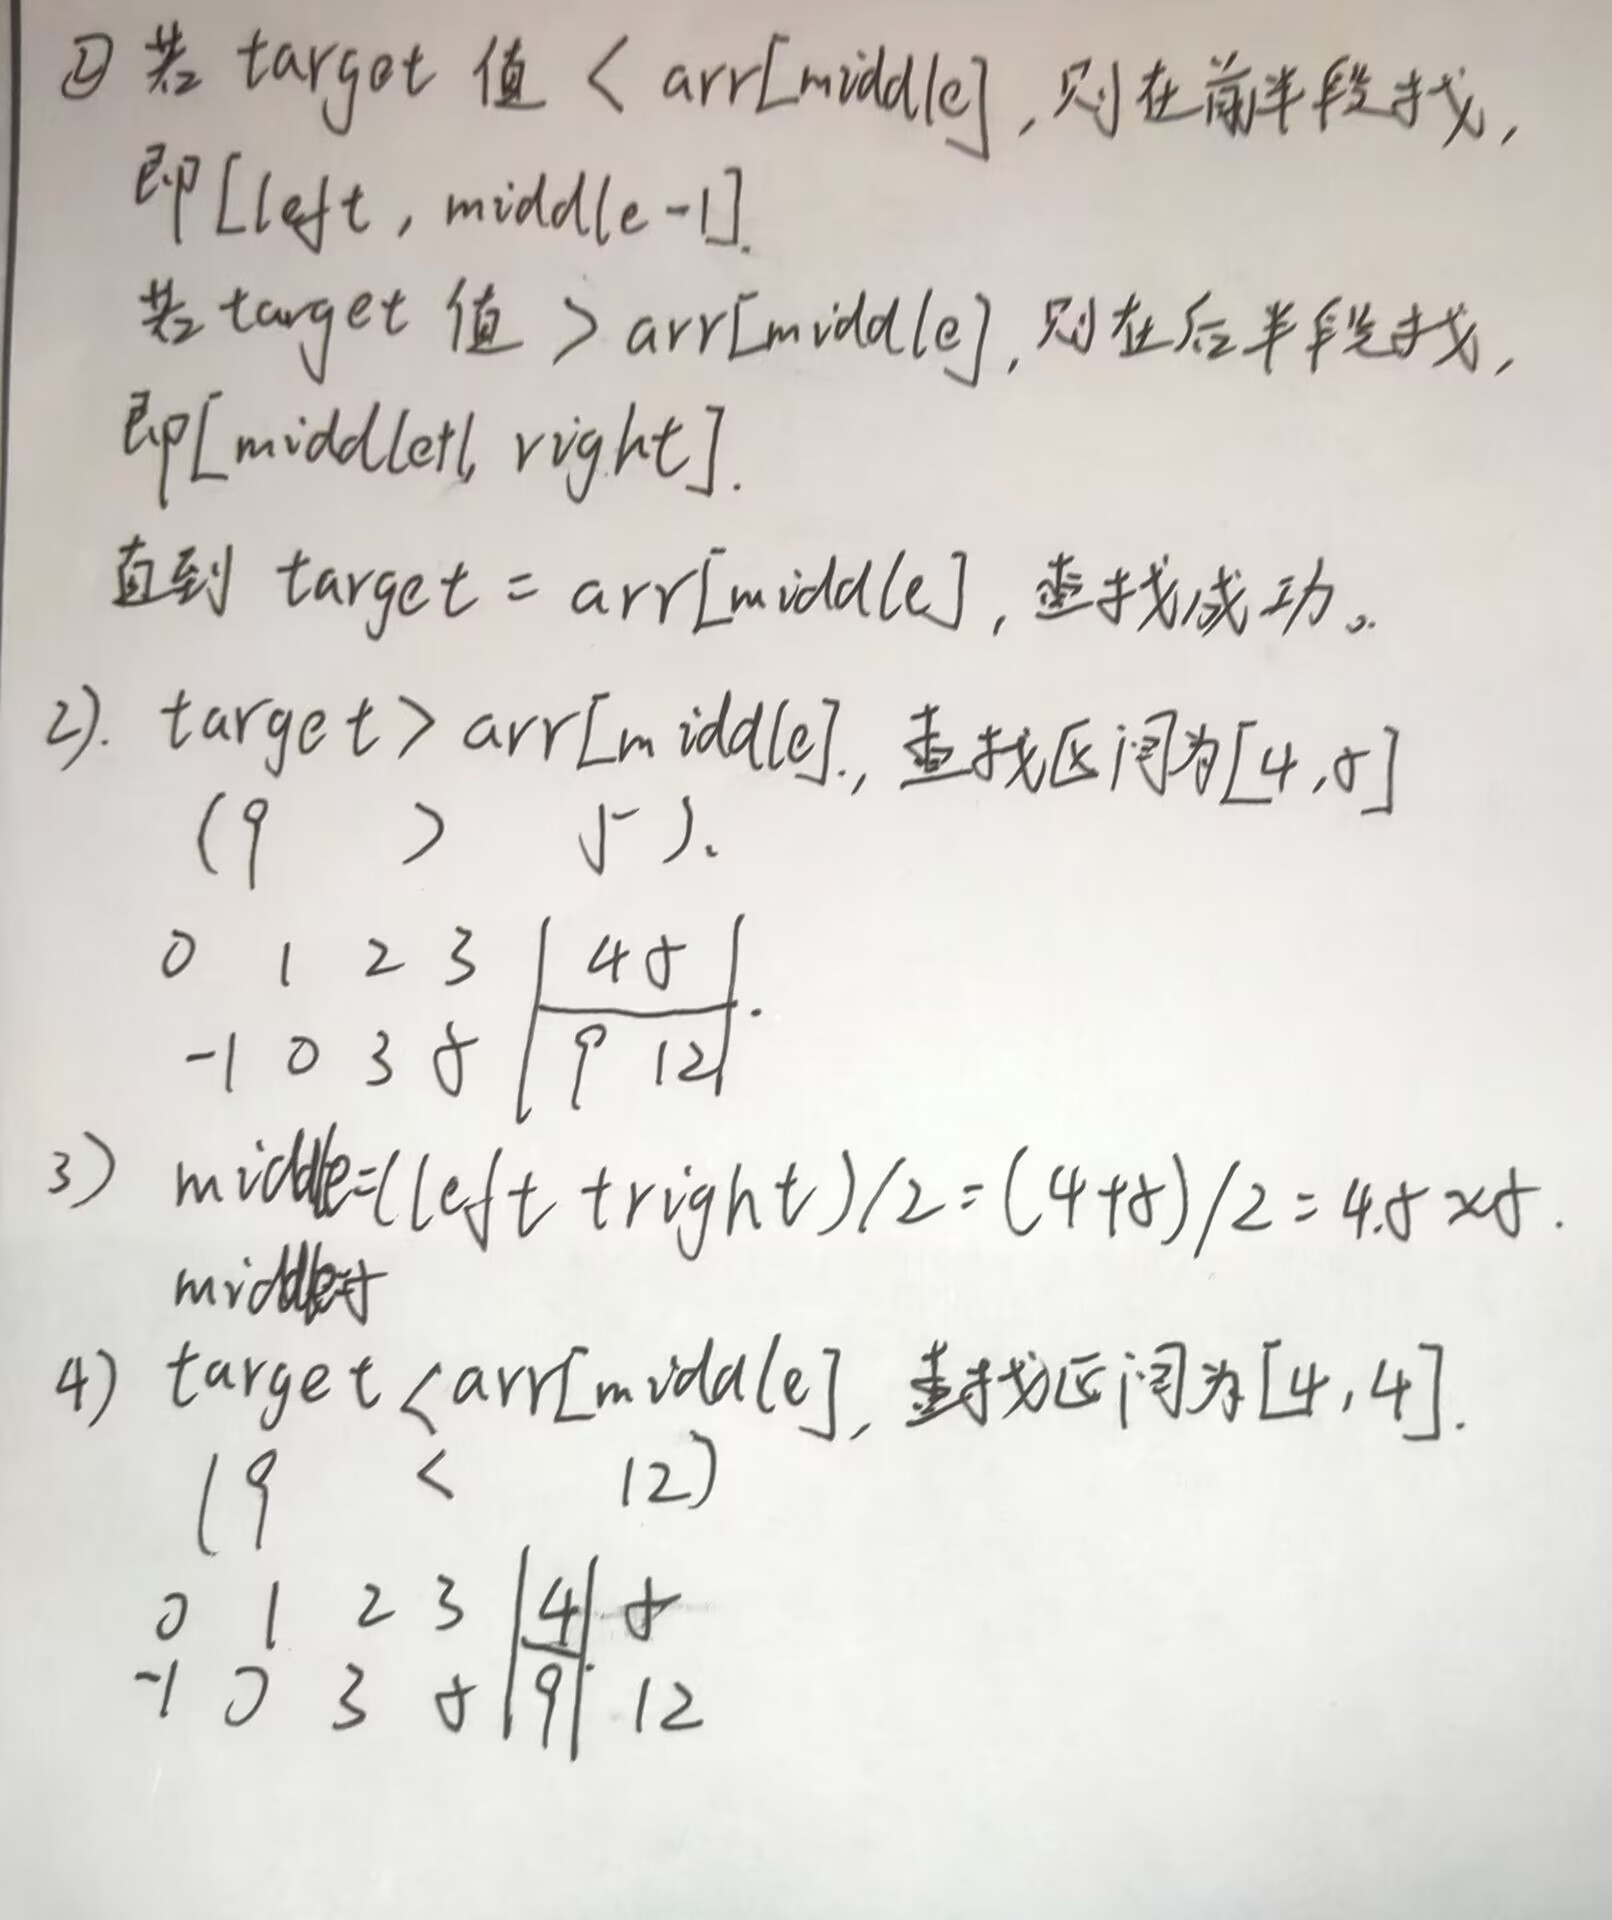 ② 若 target 值 < arr[middle],则在前半段找,
即[left, middle-1].
若 target 值 > arr[middle],则在后半段找,
即[middle+1, right].
直到 target = arr[middle],查找成功。
2). target > arr[middle].,查找区间为[4,5]
(9 > 5).
0 1 2 3 4 5
-1 0 3 5 9 12
3) middle=(left+right)/2=(4+5)/2=4.5≈5.
middle=5
4) target < arr[middle],查找区间为[4,4].
(9 < 12)
0 1 2 3 4 5
-1 0 3 5 9 12